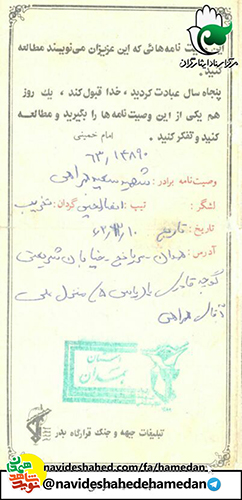 مرکز اسناد ایثارگران
این وصیت نامه‌هائی که این عزیزان می‌نویسند مطالعه
کنید.
پنجاه سال عبادت کردید، خدا قبول کند، یك روز
هم یکی از این وصیت نامه‌ها را بگیرید و مطالعه
کنید و تفکر کنید.
امام خمینی
۶۳/۱۴۸۹۰
وصیت‌نامه برادر: شهید سعید
لشگر: تیپ: انصارالحسین گردان:
تاریخ:
آدرس: همدان خیابان شریعتی
کوچه منزل
آقای
استان
همدان
تبلیغات جبهه و جنگ قرارگاه بدر
navideshahed.com/fa/hamedan
@navideshahedehamedan